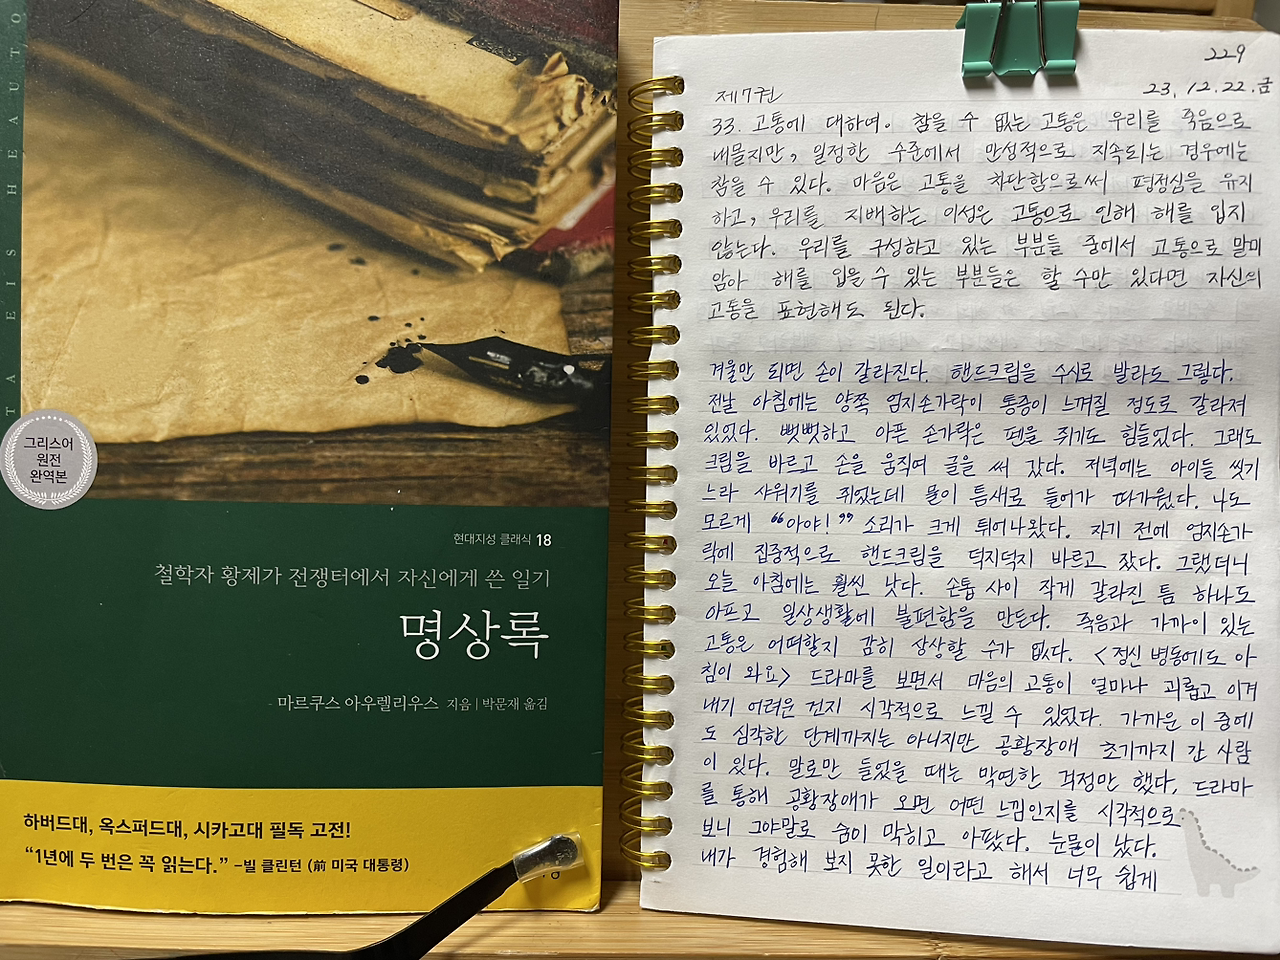 T A E I S H E A U T O
그리스어
원전
완역본
현대지성 클래식 18
철학자 황제가 전쟁터에서 자신에게 쓴 일기
명상록
- 마르쿠스 아우렐리우스 지음 | 박문재 옮김
하버드대, 옥스퍼드대, 시카고대 필독 고전!
“1년에 두 번은 꼭 읽는다.” –빌 클린턴 (前 미국 대통령)
229
23. 12. 22. 금
제7권
33. 고통에 대하여. 참을 수 없는 고통은 우리를 죽음으로
내몰지만, 일정한 수준에서 만성적으로 지속되는 경우에는
참을 수 있다. 마음은 고통을 차단함으로써 평정심을 유지
하고, 우리를 지배하는 이성은 고통으로 인해 해를 입지
않는다. 우리를 구성하고 있는 부분들 중에서 고통으로 말미
암아 해를 입을 수 있는 부분들은 할 수만 있다면 자신의
고통을 표현해도 된다.
겨울만 되면 손이 갈라진다. 핸드크림을 수시로 발라도 그렇다.
전날 아침에는 양쪽 엄지손가락이 통증이 느껴질 정도로 갈라져
있었다. 뻣뻣하고 아픈 손가락은 펜을 쥐기도 힘들었다. 그래도
크림을 바르고 손을 움직여 글을 써 갔다. 저녁에는 아이들 씻기
느라 샤워기를 쥐었는데 물이 틈새로 들어가 따가웠다. 나도
모르게 “아야!” 소리가 크게 튀어나왔다. 자기 전에 엄지손가
락에 집중적으로 핸드크림을 덕지덕지 바르고 잤다. 그랬더니
오늘 아침에는 훨씬 낫다. 손톱 사이 작게 갈라진 틈 하나도
아프고 일상생활에 불편함을 만든다. 죽음과 가까이 있는
고통은 어떠할지 감히 상상할 수가 없다. <정신병동에도 아
침이 와요> 드라마를 보면서 마음의 고통이 얼마나 괴롭고 이겨
내기 어려운 건지 시각적으로 느낄 수 있었다. 가까운 이 중에
도 심각한 단계까지는 아니지만 공황장애 초기까지 간 사람
이 있다. 말로만 들었을 때는 막연한 걱정만 했다. 드라마
를 통해 공황장애가 오면 어떤 느낌인지를 시각적으로
보니 그야말로 숨이 막히고 아팠다. 눈물이 났다.
내가 경험해 보지 못한 일이라고 해서 너무 쉽게